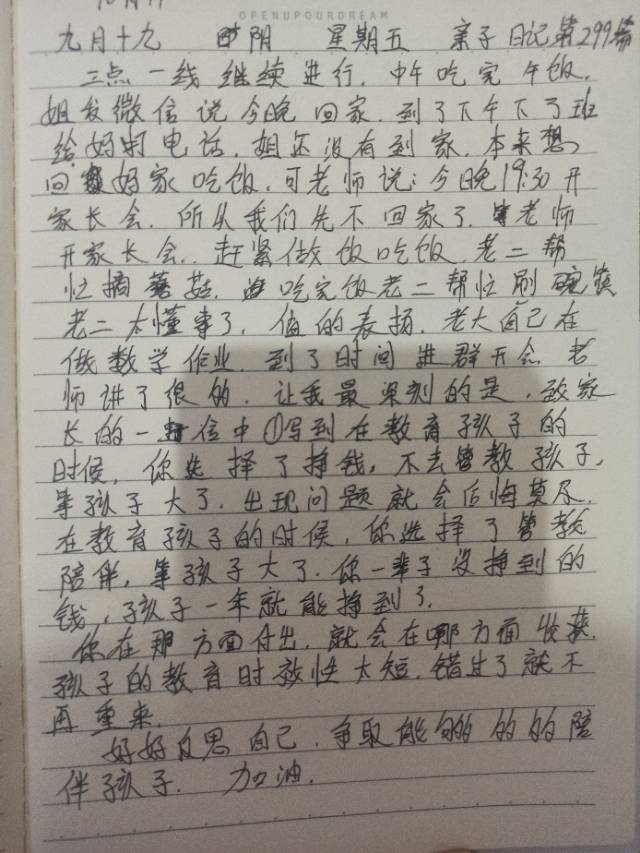 OPENUPOURDREAM
九月十九 阴 星期五 亲子日记第299篇
三点一线继续进行.中午吃完午饭.
姐发微信说今晚回家.到了下午下了班
给妈打电话.姐还没有到家.本来想
回妈家吃饭.可老师说:今晚19:30开
家长会.所以我们先不回家了.老师
开家长会.赶紧做饭吃饭.老二帮
忙摘蘑菇.吃完饭老二帮忙刷碗筷
老二太懂事了.值的表扬.老大自己在
做数学作业.到了时间进群开会.老
师讲了很的.让我最深刻的是.致家
长的一封信中①写到在教育孩子的
时候,你选择了挣钱,不去管教孩子,
等孩子大了.出现问题就会后悔莫及.
在教育孩子的时候,你选择了管教
陪伴,等孩子大了.你一辈子没挣到的
钱,孩子一年就能挣到了.
你在那方面付出.就会在哪方面收获.
孩子的教育时效性太短.错过了就不
再重来.
好好反思自己.争取能的的陪
伴孩子.加油.